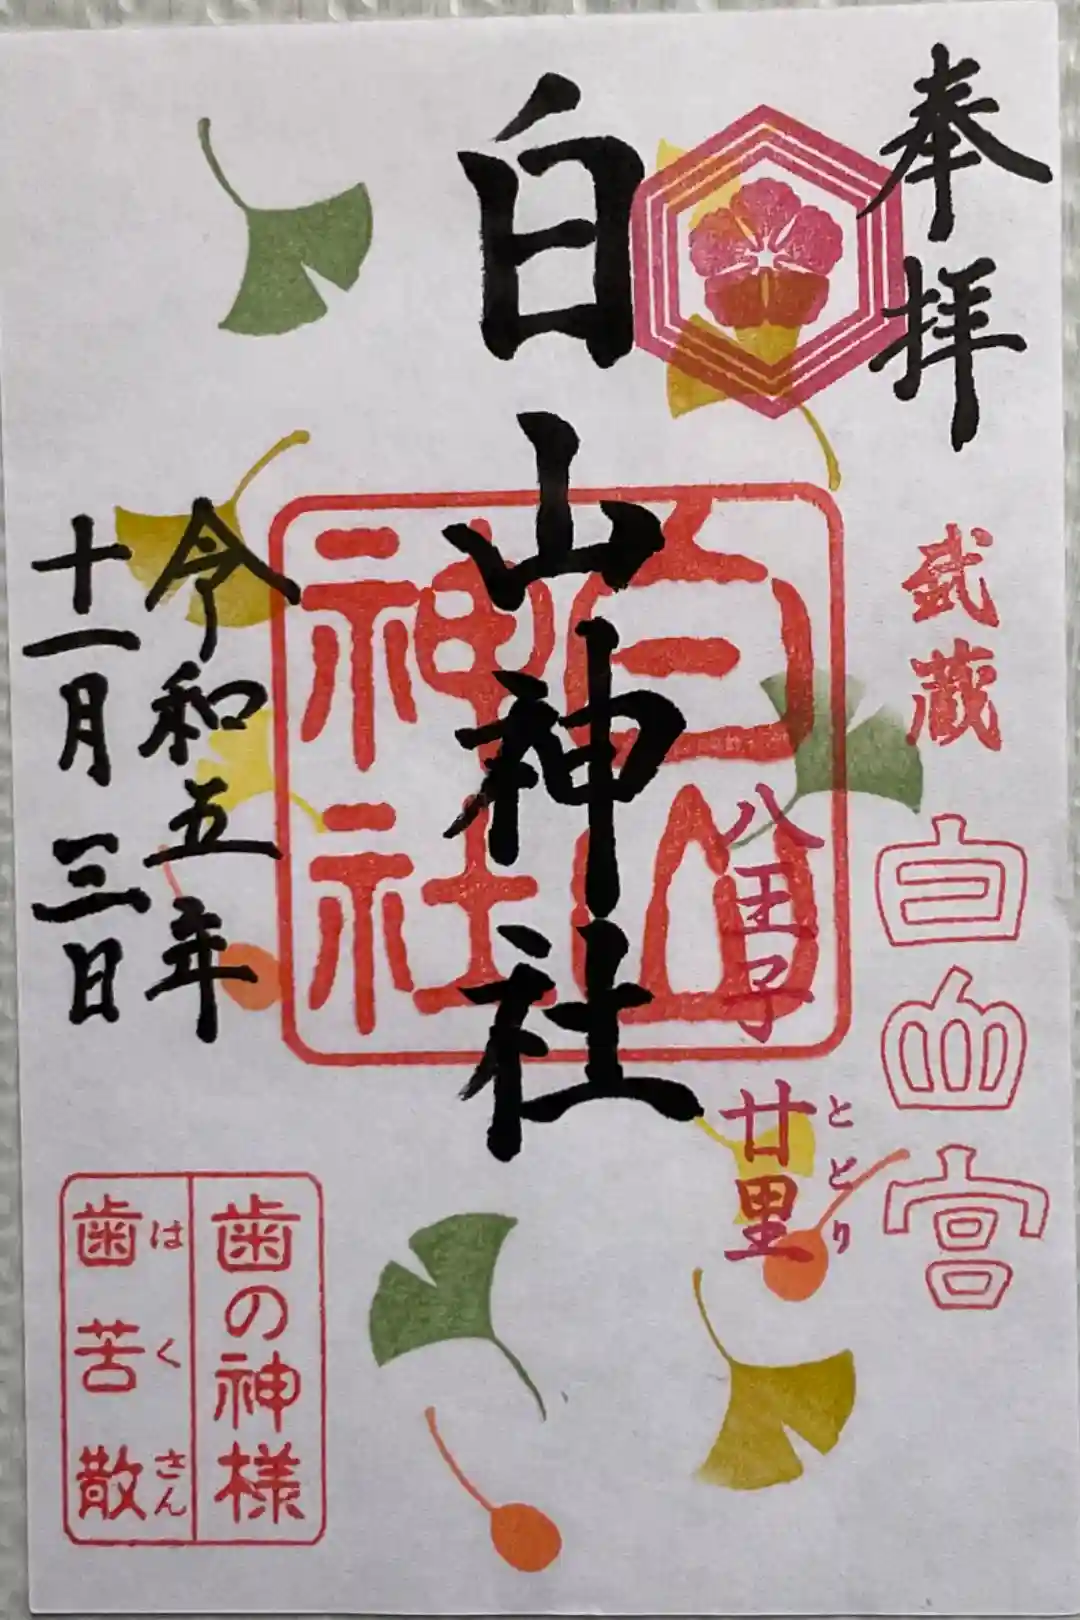 奉拝
武蔵
白山宮
八王子
廿里
とどり
白山神社
白山
神社
令和五年
十一月三日
歯の神様
歯苦散
はくさん